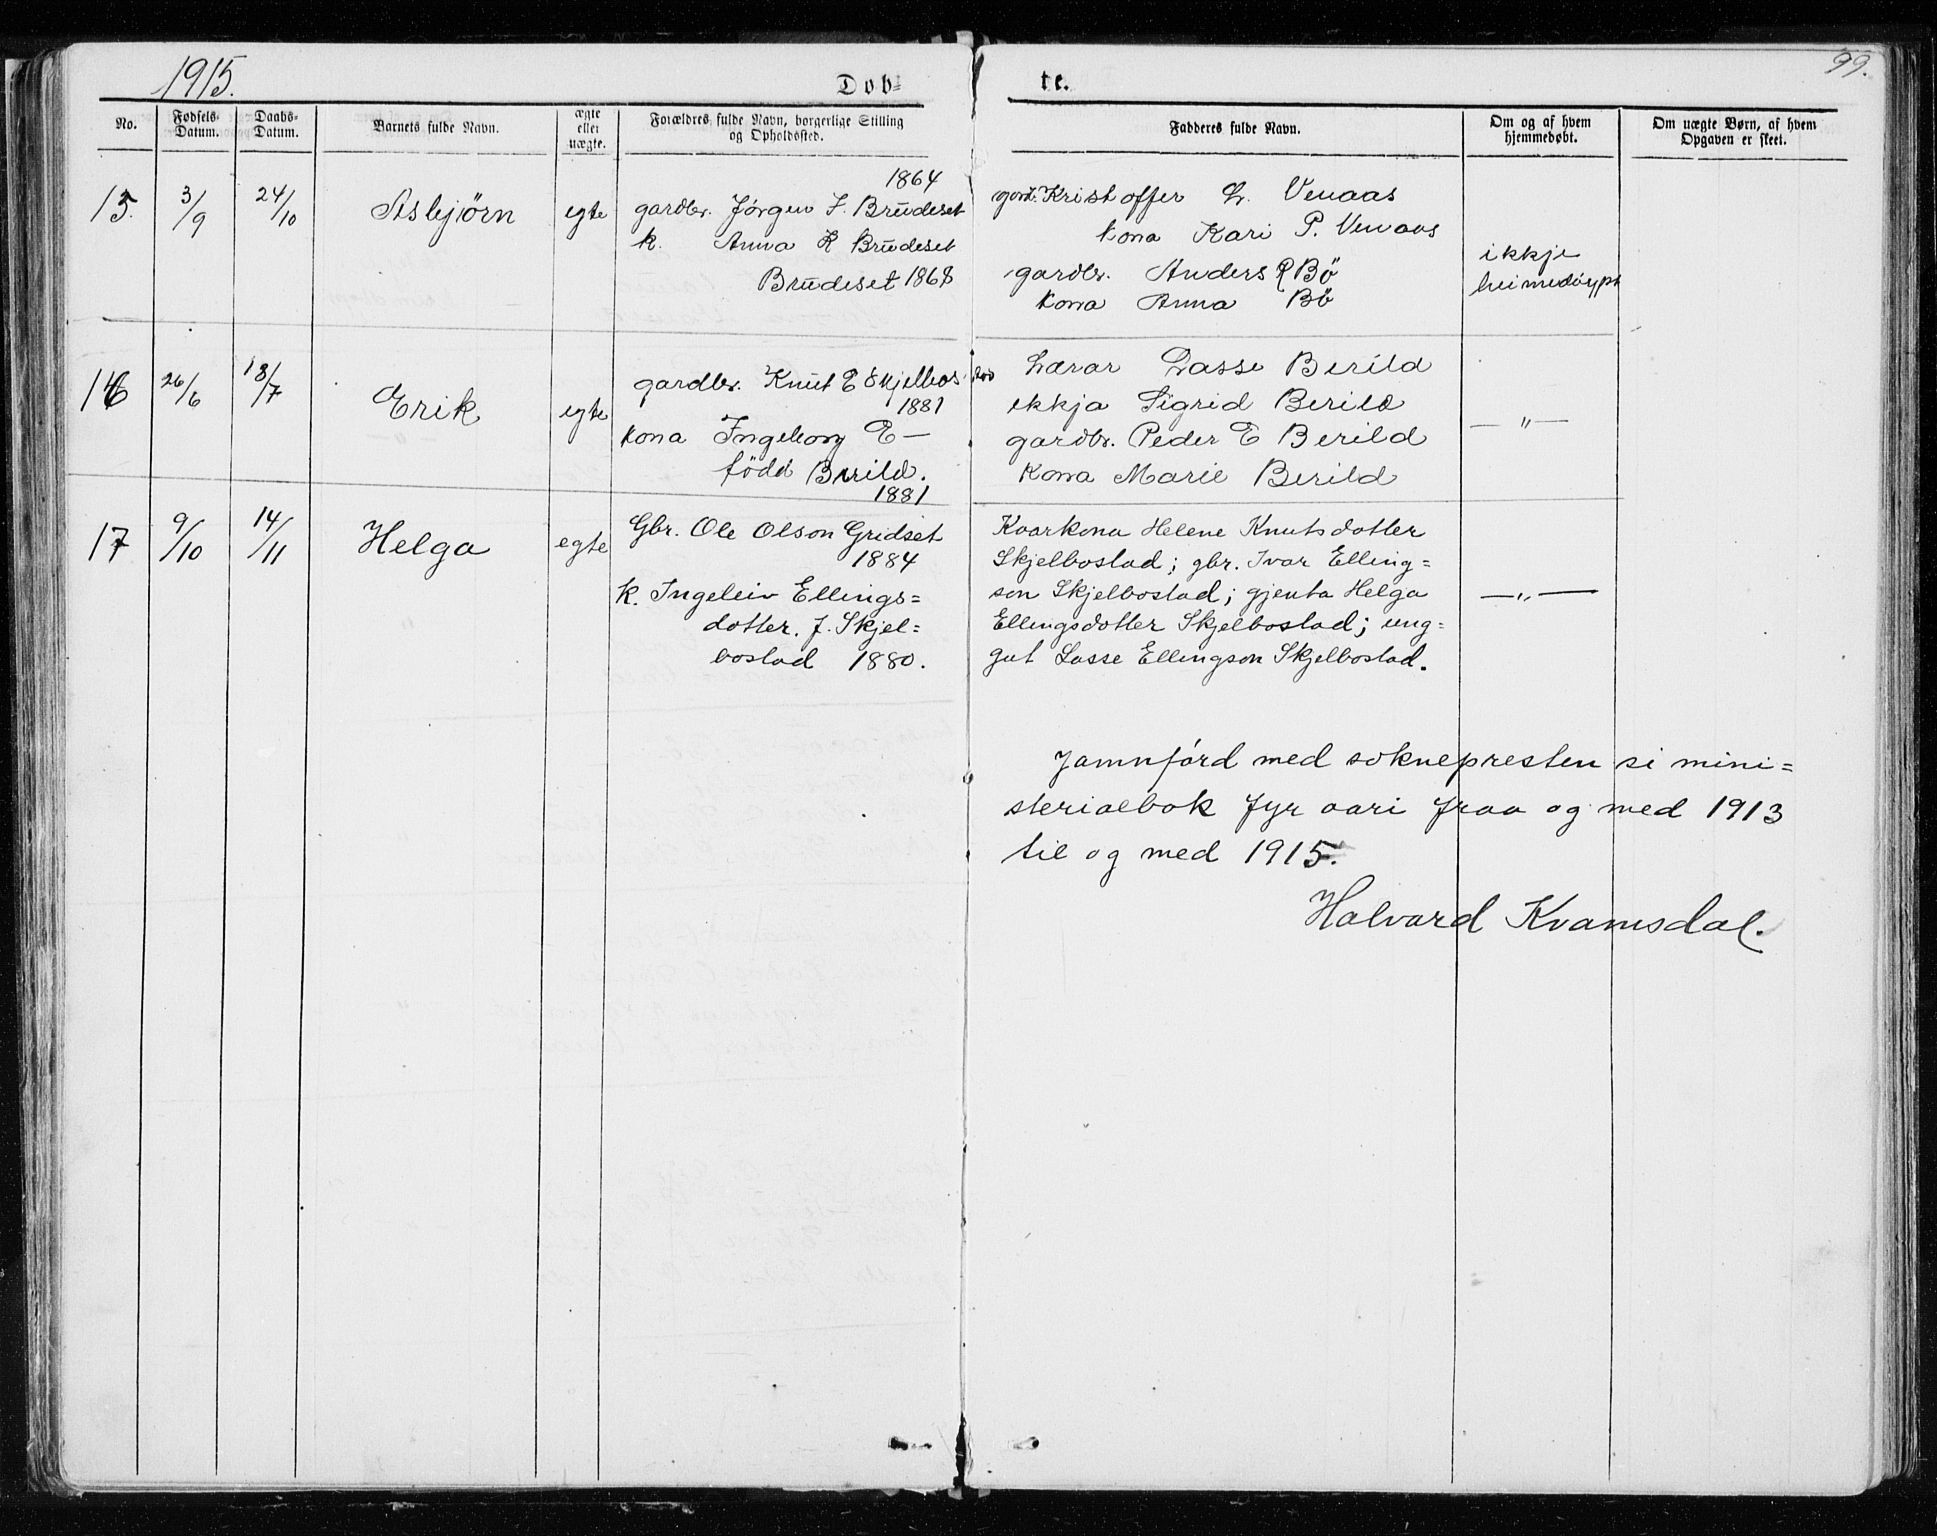 1915.
Døb-
te.
99.
No.
Fødsels-
Datum.
Daabs-
Datum.
Barnets fulde Navn.
ægte
eller
uægte.
Forældres fulde Navn, borgerlige Stilling
og Opholdssted.
Fadderes fulde Navn.
Om og af hvem
hjemmedøbt.
Om uægte Børn, af hvem
Opgaven er skeet.
15.
3/9
24/10
Asbjörn
egte
1864
gardbr. Jørgen J. Brudeset
k. Anna K Brudeset
Brudeset 1868
gardbr. Kristoffer L. Venaas
kona Kari P. Venaas
gardbr. Anders R Bö
kona Anna Bö
ikkje
heimedöypt
16
26/6
18/7
Erik
egte
gardbr. Knut E Skjelbostad
1881
kona Ingeborg E —
född Berild.
1881
Lærar Lasse Berild
ekkja Sigrid Berild
gardbr. Peder E Berild
Kona Marie Berild
— " —
17
9/10
14/11
Helga
egte
Gbr. Ole Olson Gridset
1884
k. Ingeleiv Ellings=
dotter. f. Skjel=
bostad 1880.
Kvarkona Helene Knutsdotter
Skjelbostad; gbr. Ivar Elling=
son Skjelbostad; gjenta Helga
Ellingsdotter Skjelbostad; ung=
gut Lasse Ellingson Skjelbostad.
— " —
Jamnförd med soknepresten si mini=
sterialbok fyr aari fraa og med 1913
til og med 1915.
Halvard Kvamsdal.